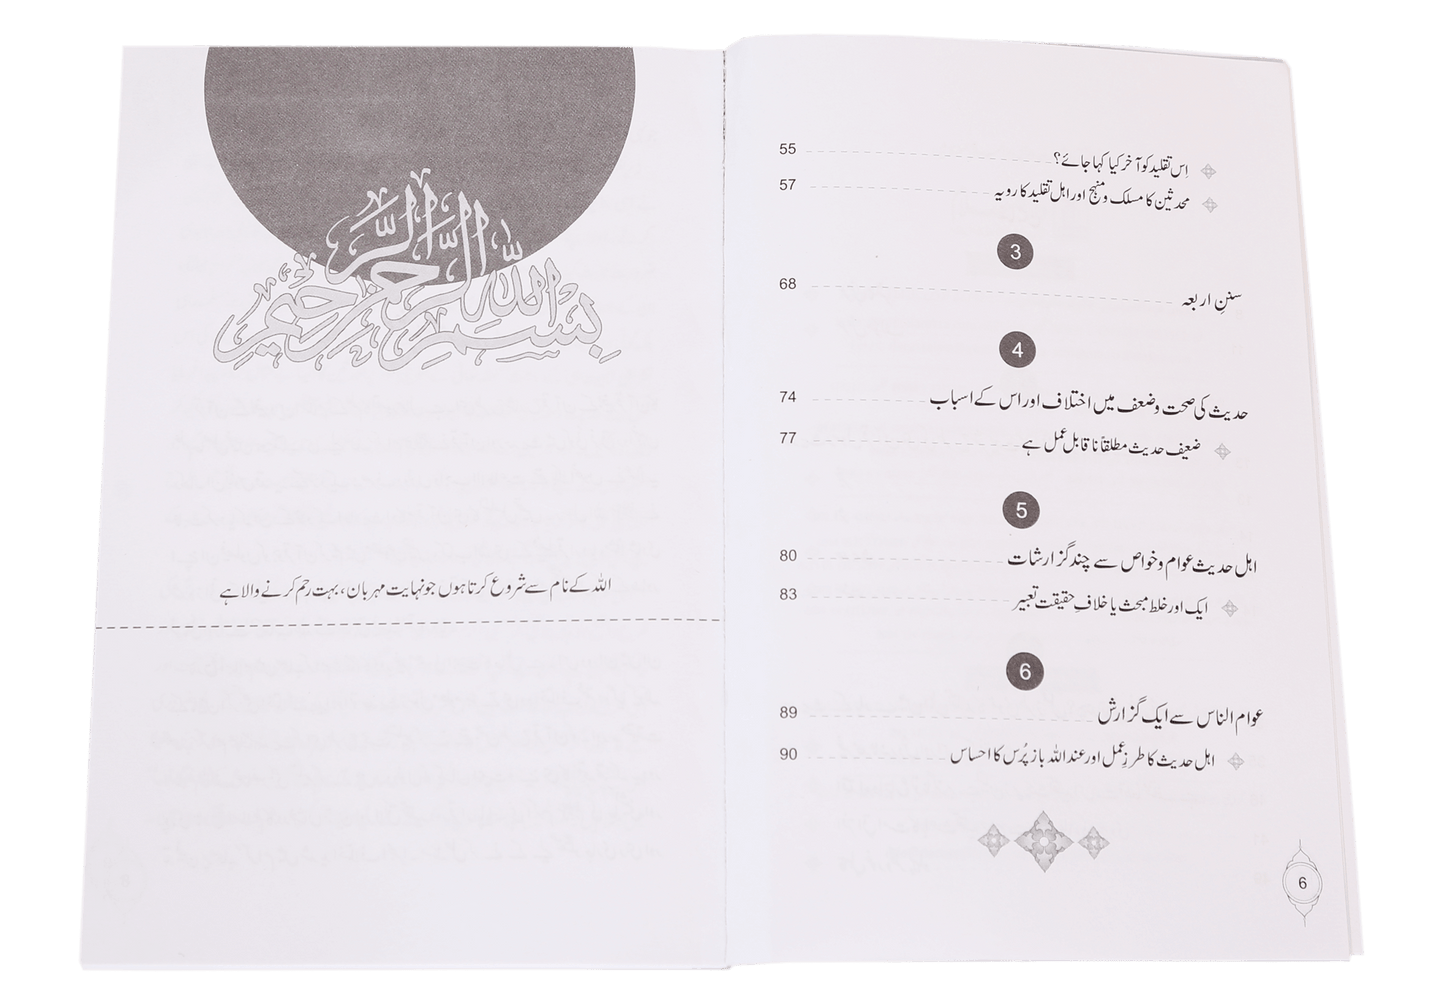 اِس تقلید کو آخر کیا کہا جائے؟ 55
محدثین کا مسلک و منہج اور اہل تقلید کا رویہ 57
3
سننِ اربعہ 68
4
حدیث کی صحت و ضعف میں اختلاف اور اس کے اسباب 74
ضعیف حدیث مطلقاً ناقابل عمل ہے 77
5
اہل حدیث عوام و خواص سے چند گزارشات 80
ایک اور خلط مبحث یا خلافِ حقیقت تعبیر 83
6
عوام الناس سے ایک گزارش 89
اہل حدیث کا طرزِ عمل اور عند اللہ باز پُرس کا احساس 90
6
بِسْمِ اللهِ الرَّحْمٰنِ الرَّحِيمِ
اللہ کے نام سے شروع کرتا ہوں جو نہایت مہربان، بہت رحم کرنے والا ہے